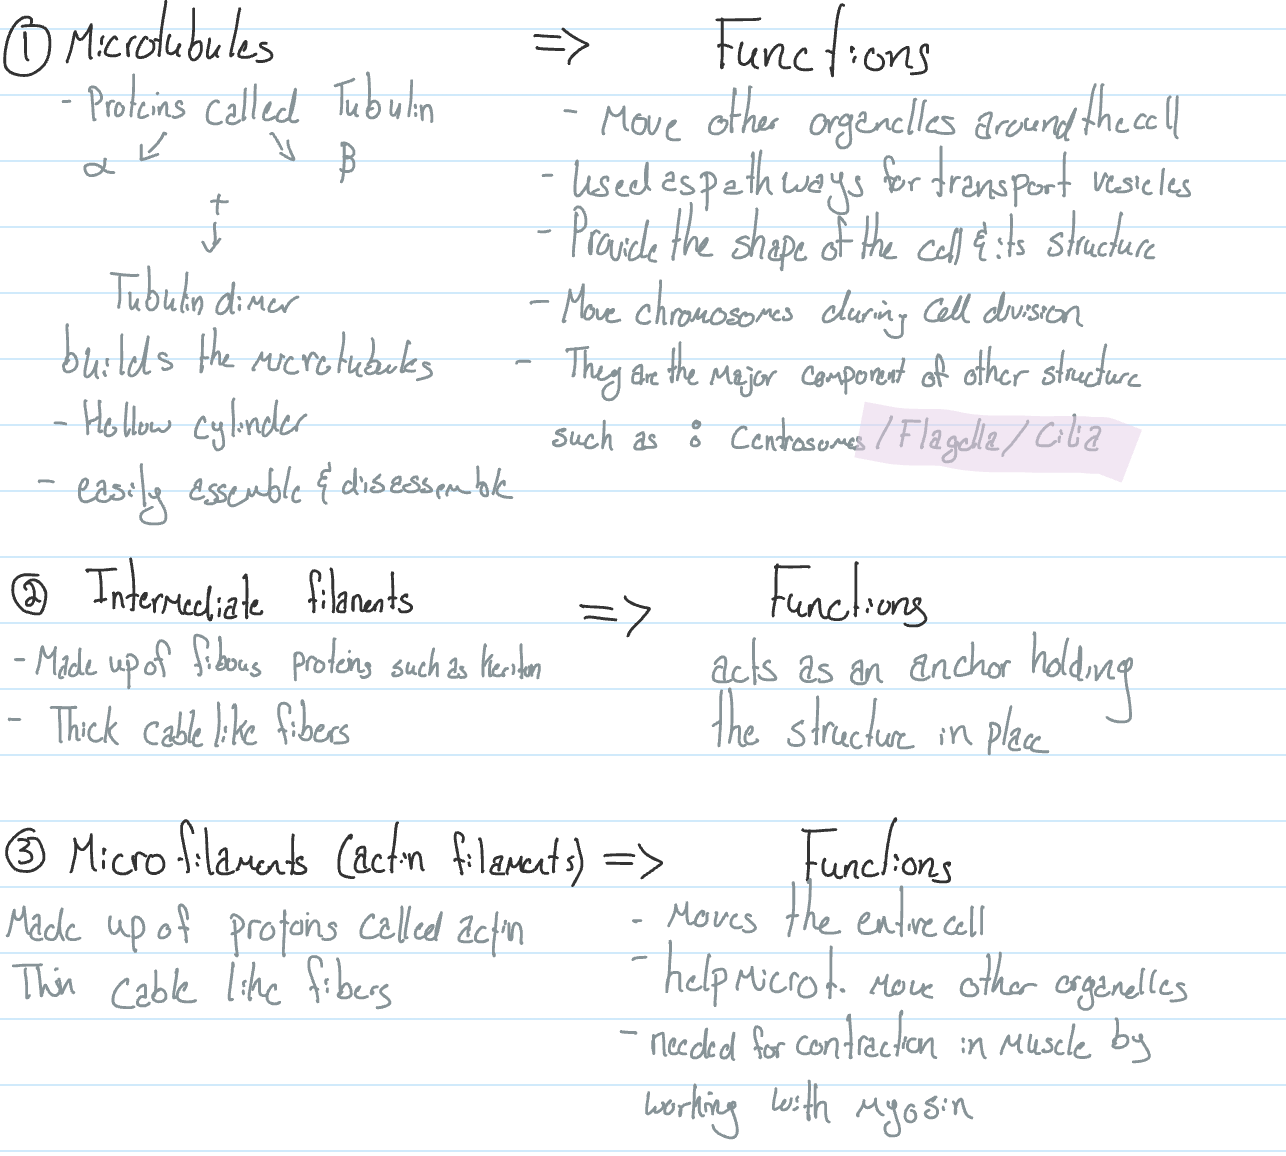 ① Microtubules => Functions
- Proteins called Tubulin
α ↙ ↘ β
+
↓
Tubulin dimer
builds the microtubules
- Hollow cylinder
- easily assemble & disessemble
- Move other organelles around the cell
- used as pathways for transport vesicles
- Provide the shape of the cell & its structure
- Move chromosomes during cell division
- They are the Major component of other structure
such as : Centrosomes / Flagella / Cilia
② Intermediate filaments => Functions
- Made up of fibous proteins such as keriton
- Thick cable like fibers
acts as an anchor holding
the structure in place
③ Microfilaments (actin filaments) => Functions
Made up of protoins called actin
Thin cable like fibers
- Moves the entire cell
- help Microt. Move other organelles
- needed for contraction in Muscle by
working with Myosin